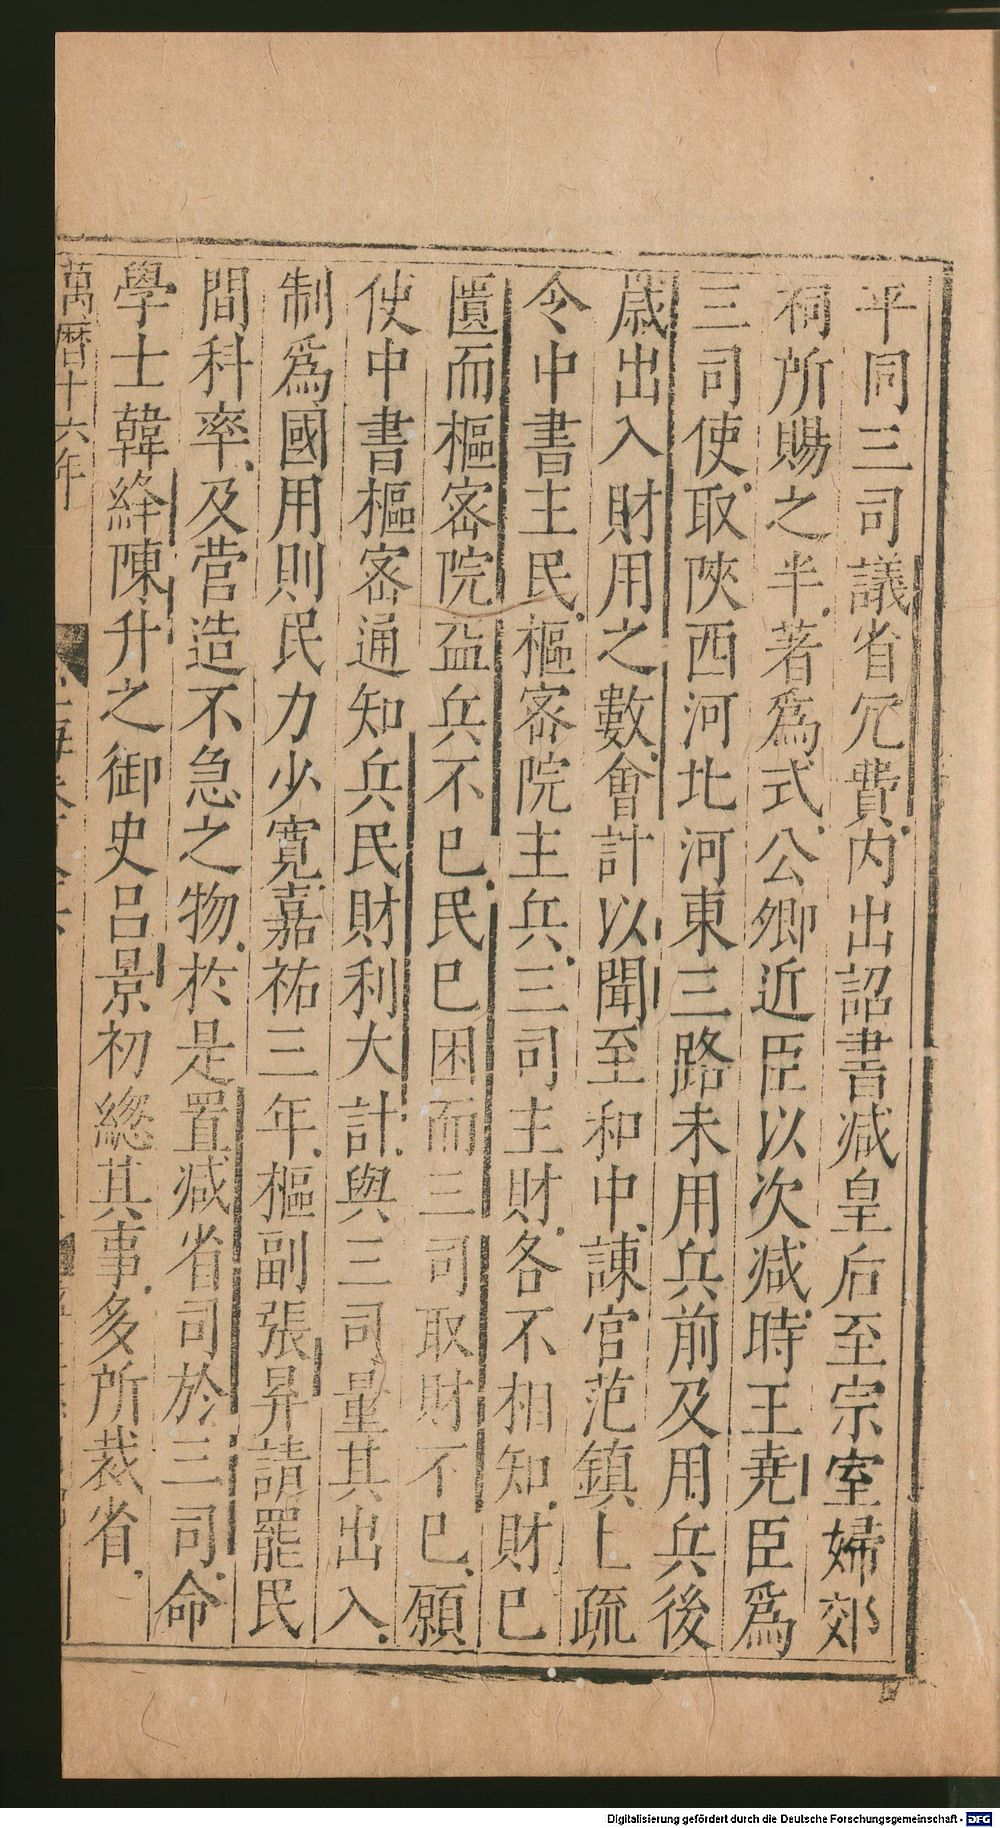 平同三司議省冗費内出詔書减皇后至宗室婦郊
祠所賜之半著爲式公卿近臣以次减時王堯臣爲
三司使取陜西河北河東三路未用兵前及用兵後
歲出入財用之數會計以聞至和中諫官范鎮上疏
今中書主民樞宻院主兵三司主財各不相知財巳
匱而樞宻院益兵不巳民巳困而三司取財不巳願
使中書樞宻通知兵民財利大計與三司量其出入
制爲國用則民力少寛嘉祐三年樞副張昇請罷民
間科率及营造不急之物於是置减省司於三司命
學士韓絳陳升之御史吕景初緫其事多所裁省
萬曆十六年
Digitalisierung gefördert durch die Deutsche Forschungsgemeinschaft - DFG